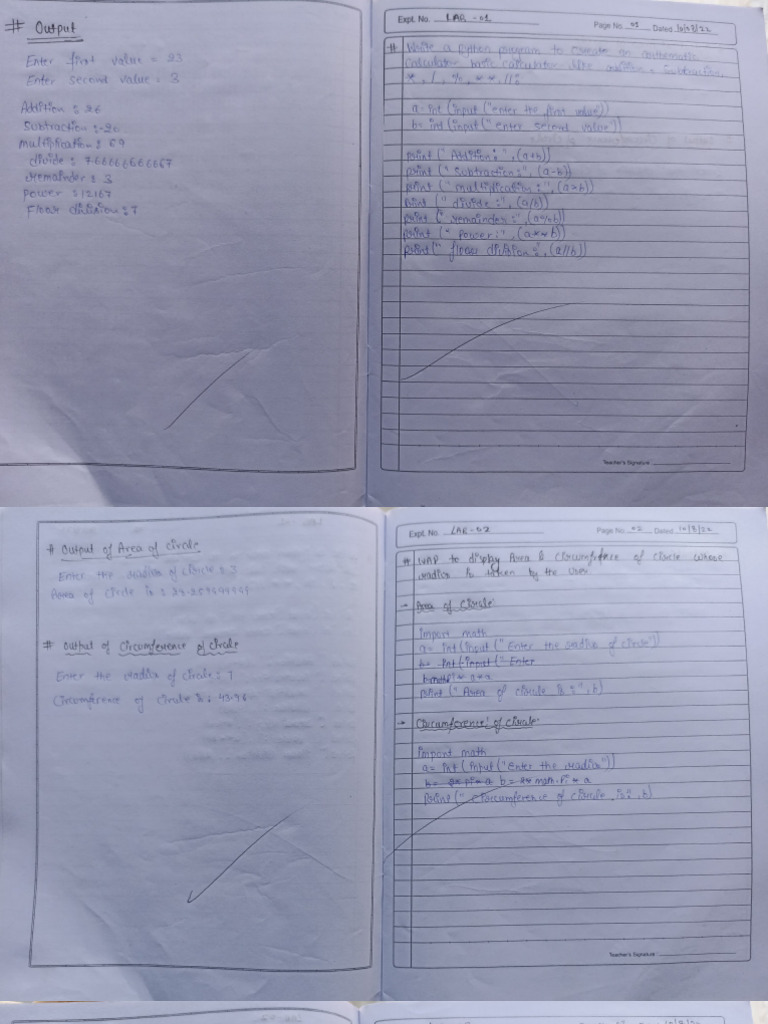 # Output
Enter first value = 23
Enter second value = 3
Addition : 26
Subtraction :-20
multiplication : 69
divide : 7.66666666667
remainder : 3
Power : 12167
Floor division : 7
Expt. No. LAB - 01
Page No. 01 Dated 10/08/22
# Write a Python program to create an arithematic
calculator basic calculator like addition, subtraction,
*, /, %, **, //:
a= int (input ("enter the first value"))
b= int (input (" enter second value")
print (" Addition: ", (a+b))
print (" Subtraction :", (a-b))
print (" multiplication :", (a*b))
print (" divide :", (a/b))
print (" remainder :", (a%b))
print (" Power :", (a**b))
print (" floor division :", (a//b))
Teacher's Signature
# Output of Area of circle
Enter the radius of circle : 3
Area of circle is :
# Output of Circumference of circle
Enter the radius of circle : 7
Circumference of circle is : 43.96
Expt. No. LAB - 02
Page No. 02 Dated 10/8/22
# WAP to display Area & Circumference of circle whose
radius is taken by the user.
→ Area of Circle
import math
a= int (input (" Enter the radius of circle"))
b= int (input (" Enter
print (" Area of circle is :", b)
→ Circumference of circle
import math
a= int (input ("Enter the radius"))
b= 2* pi * a b = 2* math.pi * a
print (" circumference of circle is:, b)
Teacher's Signature